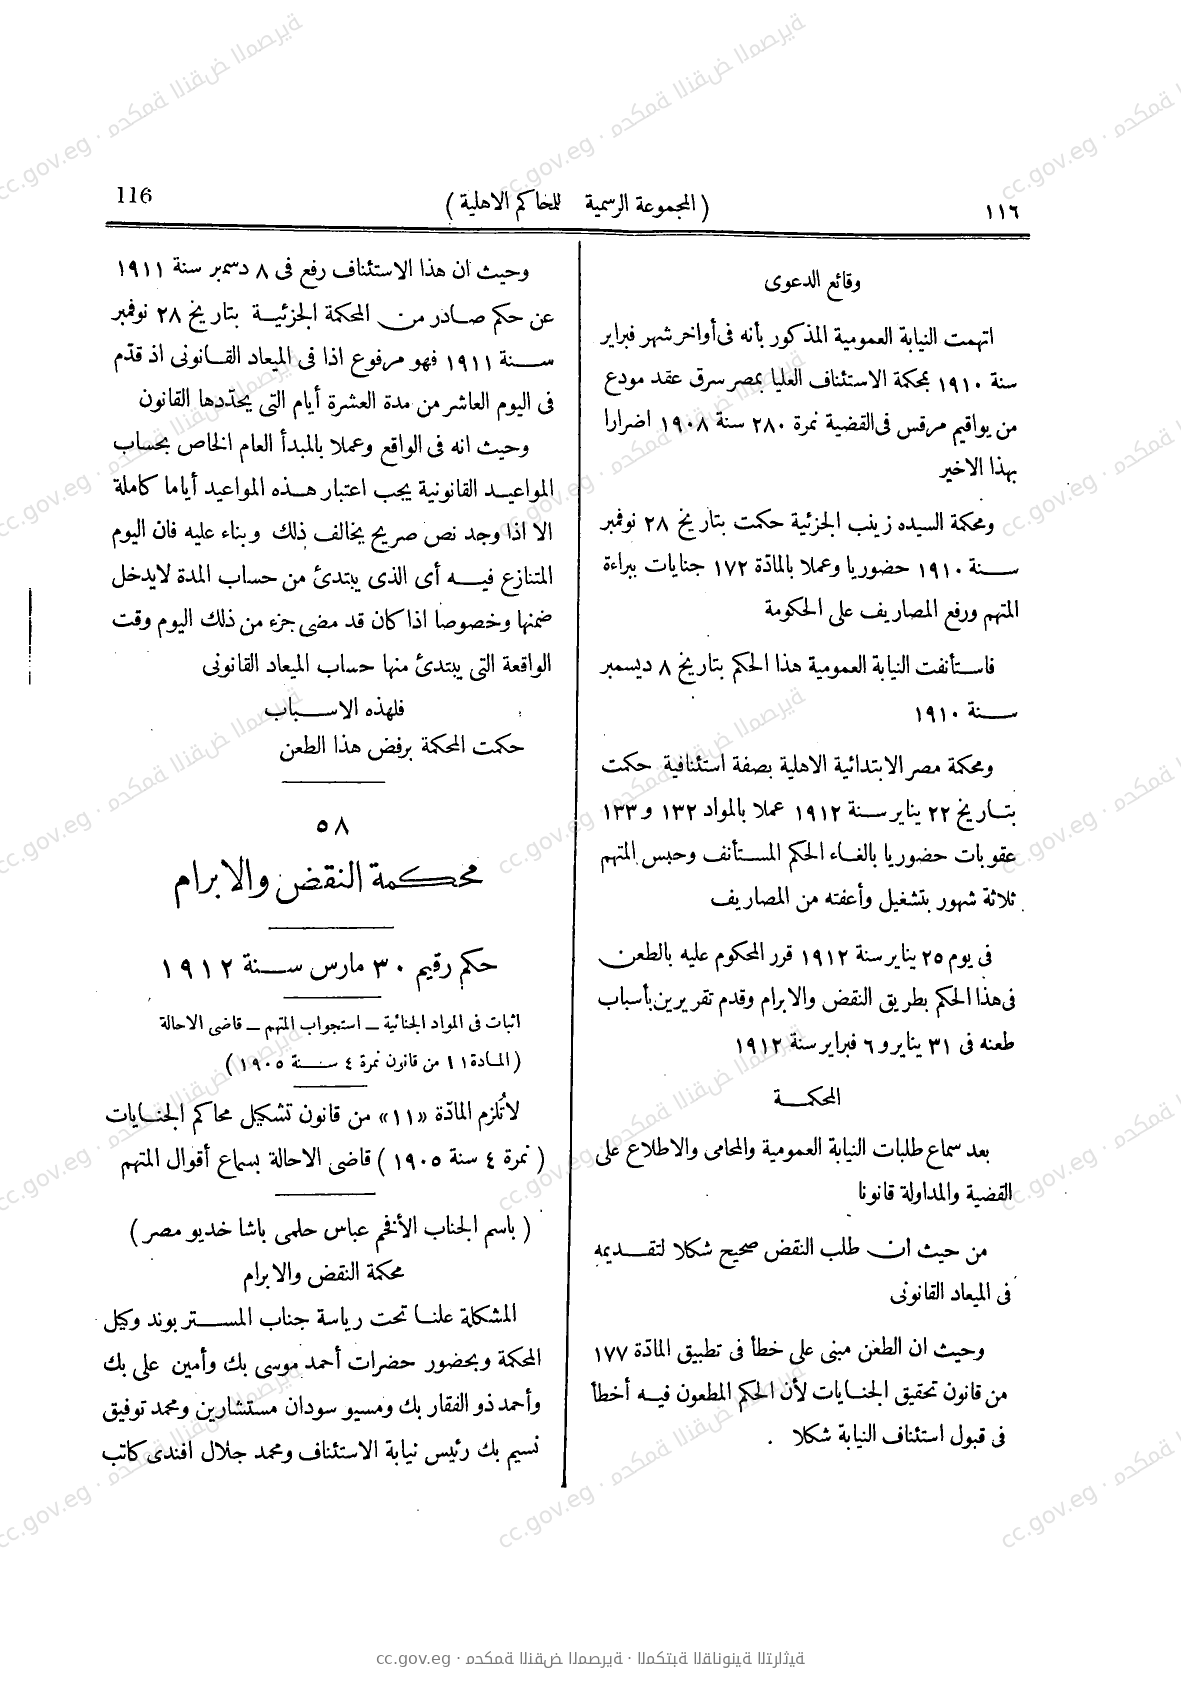 116
( المجموعة الرسمية للمحاكم الاهلية )
١١٦
وقائع الدعوى
اتهمت النيابة العمومية المذكور بأنه فى أواخر شهر فبراير
سنة ١٩١٠ بمحكمة الاستئناف العليا بمصر سرق عقد مودع
من يواقيم مرقس فى القضية نمرة ٢٨٠ سنة ١٩٠٨ اضرارا
بهذا الاخير
ومحكمة السيده زينب الجزئية حكمت بتاريخ ٢٨ نوفمبر
سنة ١٩١٠ حضوريا وعملا بالمادّة ١٧٢ جنايات ببراءة
المتهم ورفع المصاريف على الحكومة
فاستأنفت النيابة العمومية هذا الحكم بتاريخ ٨ ديسمبر
سنة ١٩١٠
ومحكمة مصر الابتدائية الاهلية بصفة استئنافية حكمت
بتاريخ ٢٢ يناير سنة ١٩١٢ عملا بالمواد ١٣٢ و ١٣٣
عقوبات حضوريا بالغاء الحكم المستأنف وحبس المتهم
ثلاثة شهور بتشغيل وأعفته من المصاريف
فى يوم ٢٥ يناير سنة ١٩١٢ قرر المحكوم عليه بالطعن
فى هذا الحكم بطريق النقض والابرام وقدم تقريرين بأسباب
طعنه فى ٣١ يناير و ٦ فبراير سنة ١٩١٢
المحكمة
بعد سماع طلبات النيابة العمومية والمحامى والاطلاع على
القضية والمداولة قانونا
من حيث ان طلب النقض صحيح شكلا لتقديمه
فى الميعاد القانونى
وحيث ان الطعن مبنى على خطأ فى تطبيق المادّة ١٧٧
من قانون تحقيق الجنايات لأن الحكم المطعون فيه أخطأ
فى قبول استئناف النيابة شكلا .
وحيث ان هذا الاستئناف رفع فى ٨ دسمبر سنة ١٩١١
عن حكم صادر من المحكمة الجزئية بتاريخ ٢٨ نوفمبر
سنة ١٩١١ فهو مرفوع اذا فى الميعاد القانونى اذ قدّم
فى اليوم العاشر من مدة العشرة أيام التى يحدّدها القانون
وحيث انه فى الواقع وعملا بالمبدأ العام الخاص بحساب
المواعيد القانونية يجب اعتبار هذه المواعيد أياما كاملة
الا اذا وجد نص صريح يخالف ذلك وبناء عليه فان اليوم
المتنازع فيه أى الذى يبتدئ من حساب المدة لايدخل
ضمنها وخصوصا اذا كان قد مضى جزء من ذلك اليوم وقت
الواقعة التى يبتدئ منها حساب الميعاد القانونى
فلهذه الاسباب
حكمت المحكمة برفض هذا الطعن
٥٨
محكمة النقض والابرام
حكم رقيم ٣٠ مارس سنة ١٩١٢
اثبات فى المواد الجنائية – استجواب المتهم – قاضى الاحالة
( المادة ١١ من قانون نمرة ٤ سنة ١٩٠٥ )
لاتُلزم المادّة «١١» من قانون تشكيل محاكم الجنايات
( نمرة ٤ سنة ١٩٠٥ ) قاضى الاحالة بسماع أقوال المتهم
( باسم الجناب الأفخم عباس حلمى باشا خديو مصر )
محكمة النقض والابرام
المشكلة علنا تحت رياسة جناب المستر بوند وكيل
المحكمة وبحضور حضرات أحمد موسى بك وأمين على بك
وأحمد ذو الفقار بك ومسيو سودان مستشارين ومحمد توفيق
نسيم بك رئيس نيابة الاستئناف ومحمد جلال افندى كاتب
cc.gov.eg · محكمة النقض المصرية · المكتبة القانونية التراثية